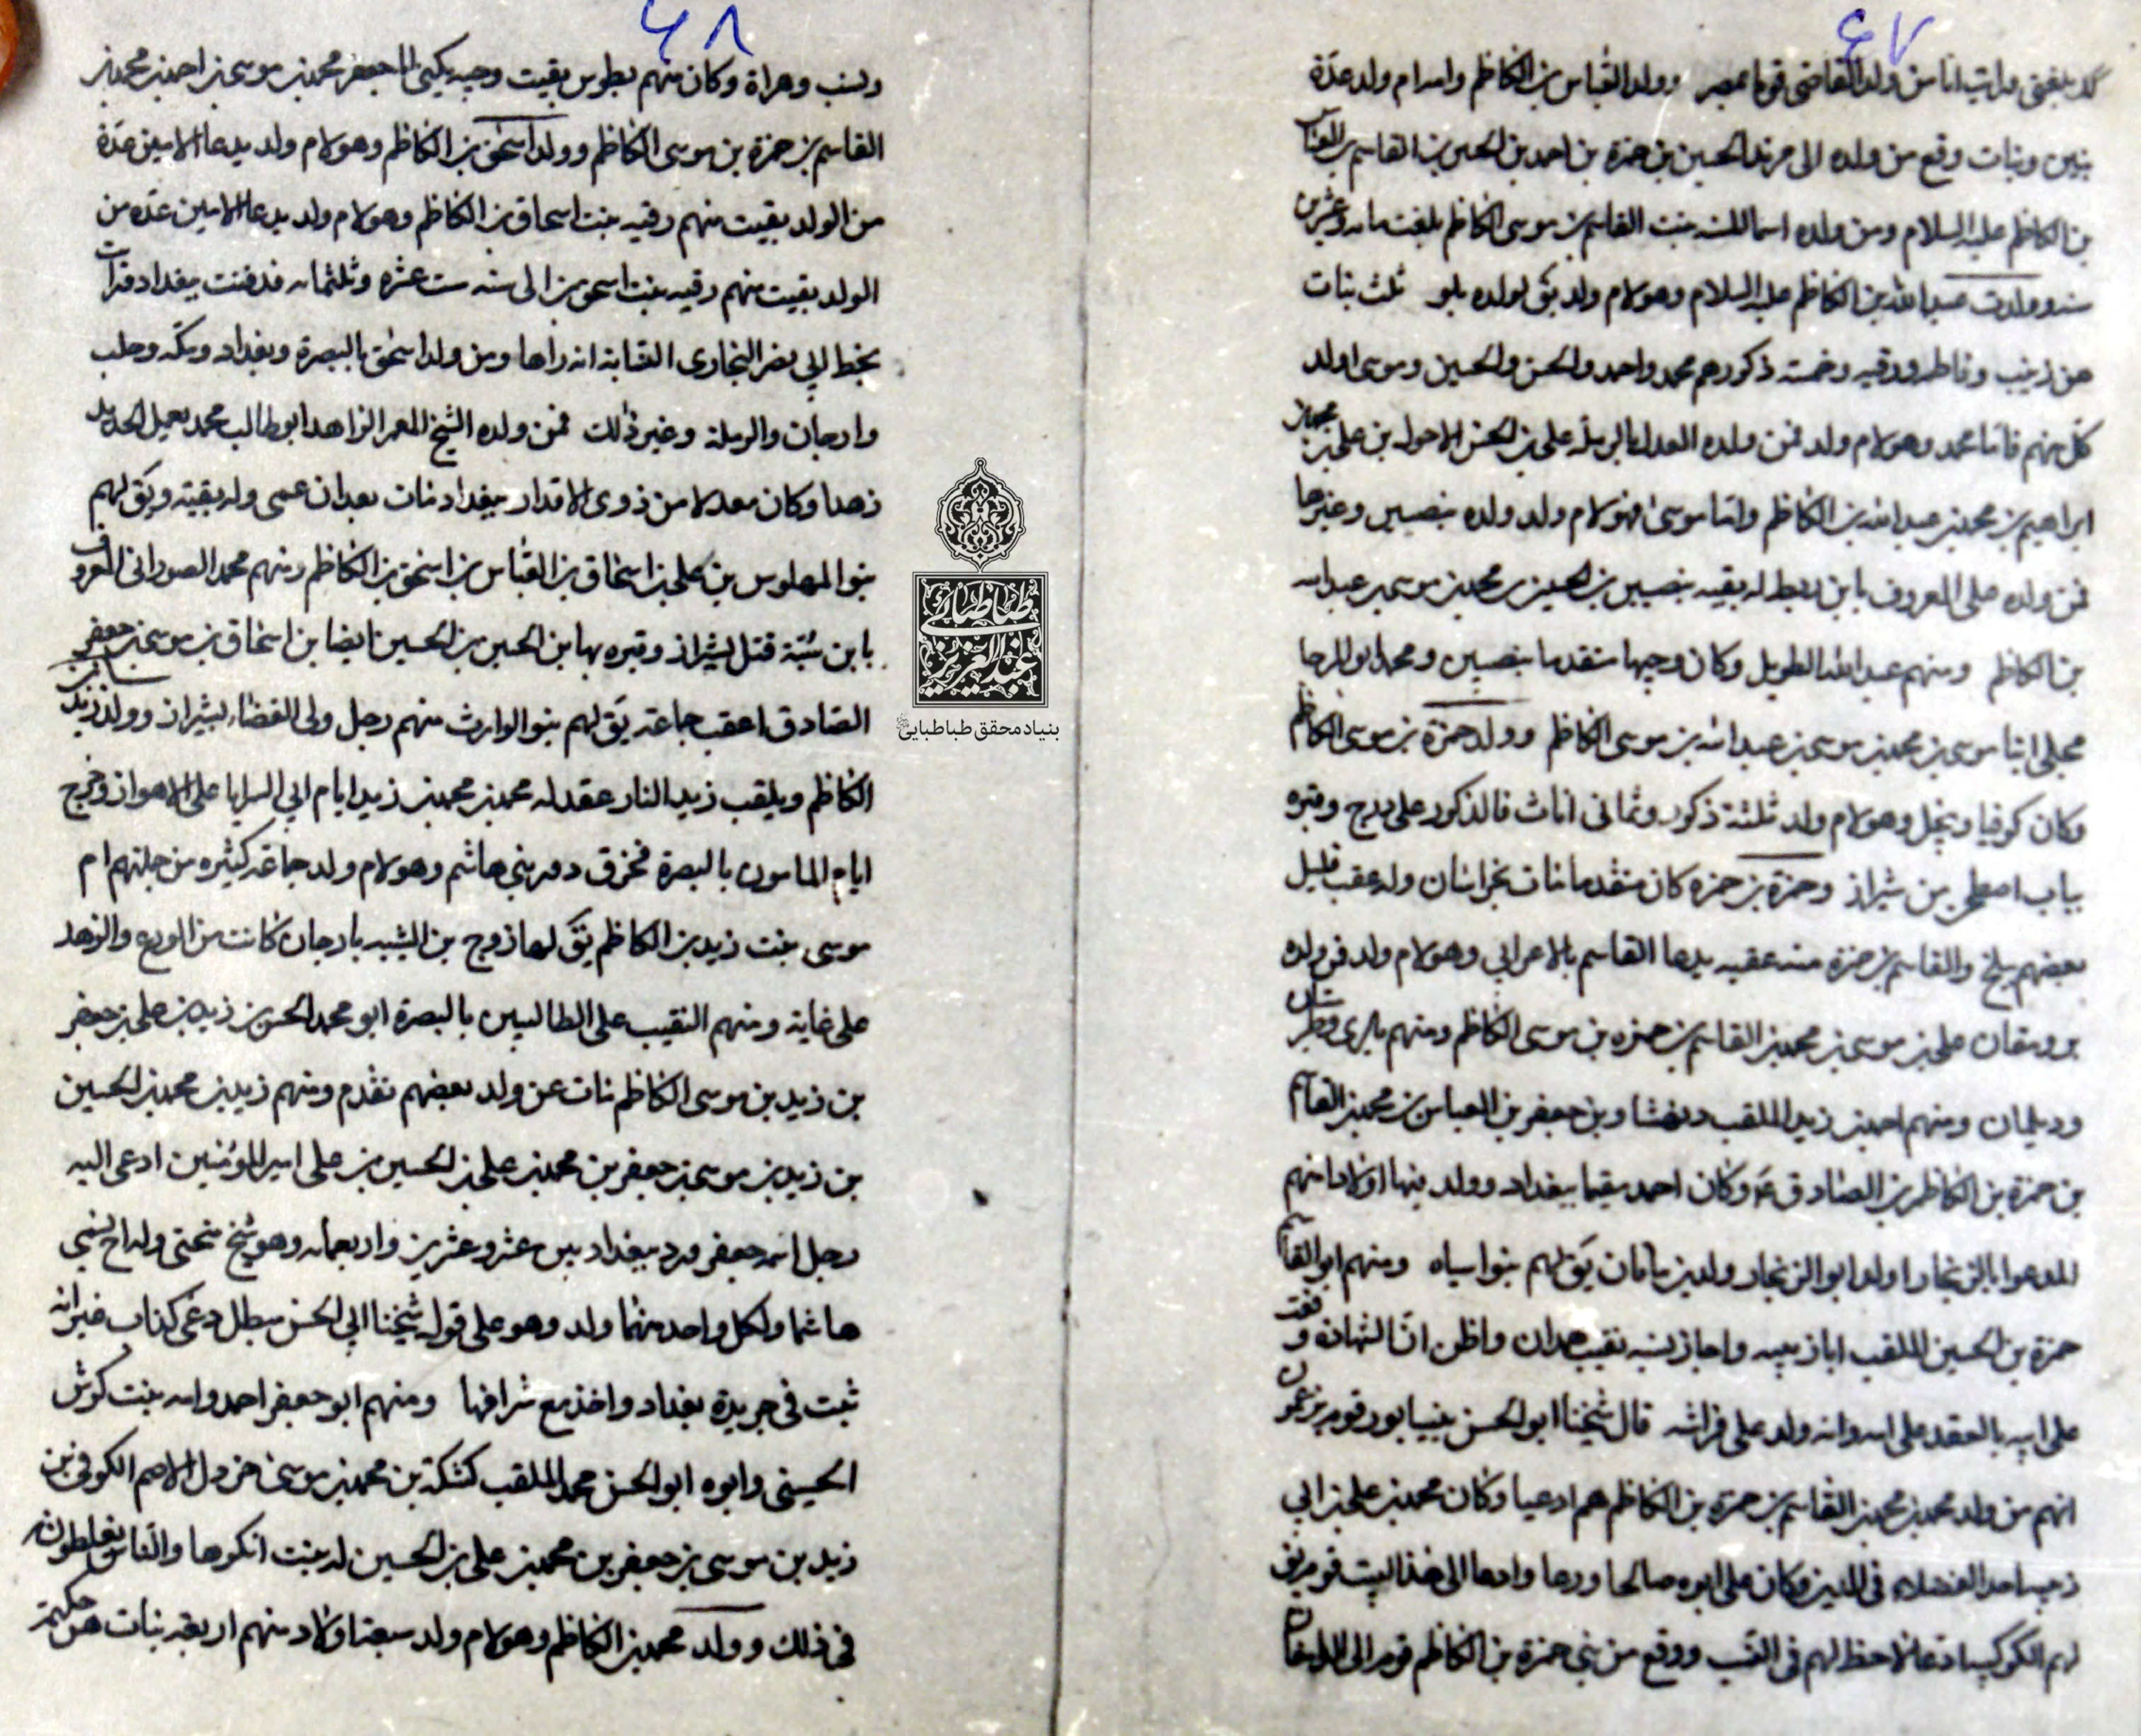 ٤٧
كذا بلغنى وابت انا من ولد القاضى قوما بمصر وولد العباس بن الكاظم وامه ام ولد عدة
بنين وبنات وقع من ولده الى مرند الحسين بن حمزة بن احمد بن الحسين بن القاسم بن العباس
بن الكاظم عليه السلام ومن ولده بنت القاسم بن موسى الكاظم بلغت مايه وعشرين
سنه وولد عبدالله بن الكاظم عليه السلام وهو لام ولد يق لولده ثلث بنات
هن زينب وفاطمه ورقيه وخمسة ذكور هم محمد واحمد والحسن والحسين وموسى اولد
كل منهم فاما محمد وهو لام ولد فمن ولده بالرملة على بن الحسن الاحول بن على بن
ابراهيم بن محمد بن عبدالله بن الكاظم واما موسى فهو لام ولد ولده بنصيبين وغيرها
فمن ولده على المعروف بابن له بقيه بنصيبين بن الحسين بن محمد بن موسى بن عبدالله
بن الكاظم ومنهم عبدالله الطويل وكان وجيها متقدما بنصيبين ومحمد ابو المرجا
محلى ابنا موسى بن محمد بن موسى بن عبدالله بن موسى الكاظم وولد حمزة بن موسى الكاظم
وكان كوفيا وهو لام ولد ثلثة ذكور وثمانى اناث فالذكور على درج وقبره
بباب اصطخر من شيراز وحمزة بن حمزه كان متقدما بخراسان وله عقب قليل
بعضهم ببلخ والقاسم بن حمزة منه عقبه يدعا القاسم بالاعرابي وهو لام ولد فمن ولده
على بن موسى بن محمد بن القاسم بن حمزه بن موسى الكاظم ومنهم بالرى وطبرستان
وديلمان ومنهم احمد بن زيد الملقب بن جعفر بن العباس بن محمد بن القاسم
بن حمزة بن الكاظم بن الصادق ع وكان احمد مقيما ببغداد وولد بها اولادا منهم
المدعوا بالزنجار اولد ابو الزنجار ولدين ماتان يق لهم بنوا سياه ومنهم ابو القاسم
حمزة بن الحسين الملقب ابا زبيبه واجاز نسبه نقيب همدان واظن ان الشهادة وقعت
على ابيه بالعقد على امه وانه ولد على فراشه قال شيخنا ابو الحسن بنيسابور قوم يزعمون
انهم من ولد محمد بن محمد بن القاسم بن حمزة بن الكاظم هم ادعيا وكان محمد بن على بن ابي
زبيبه احد الفضلاء فى الدين وكان على ابوه صالحا ورعا وادعا الى هذا البيت قوم يق
لهم الكوكبيه ادعا لا حظ لهم فى النسب ووقع من بنى حمزة بن الكاظم قوم الى الطالقان
٤٨
وهراة وكان منهم بطوس بقيت وجيه يكنى ابا جعفر محمد بن موسى بن احمد بن محمد بن
القاسم بن حمزة بن موسى الكاظم وولد اسحق بن الكاظم وهو لام ولد يدعا الامين عدة
من الولد بقيت منهم رقيه بنت اسحاق بن الكاظم وهو لام ولد يدعا الامين عده من
الولد بقيت منهم رقيه بنت اسحق بن الى سنه ست عشره وثلثمايه فدفنت ببغداد قرات
بخط ابي نصر البخارى النسابة انه راها ومن ولد اسحق بالبصرة وبغداد ومكه وحلب
وارجان والرملة وغير ذلك فمن ولده الشيخ المعمر الزاهد ابو طالب محمد يعمل الحديد
زهدا وكان معدلا من ذوى الاقدار ببغداد مات بعد ان عمى وله بقيته ويق لهم
بنو المهلوس بن على بن اسحاق بن العباس بن اسحق بن الكاظم ومنهم محمد الصورانى المعروف
بابن نسيبة قتل بشيراز وقبره بها ابن الحسين بن الحسين ايضا بن اسحاق بن موسى بن جعفر
الصادق اعقب جماعة يق لهم بنو الوارث منهم رجل ولى القضاء بشيراز وولد زيد بن
الكاظم ويلقب زيد النار عقد له محمد بن محمد بن زيد ايام ابي السرايا على الاهواز وخرج
ايام المامون بالبصرة فحرق دور بني هاشم وهو لام ولد جماعة كثيره من جملتهم ام
موسى بنت زيد بن الكاظم يق لها زوج بن الشبيه بارجان كانت من الورع والزهد
على غاية ومنهم النقيب على الطالبيين بالبصرة ابو محمد الحسن بن زيد بن على بن جعفر
بن زيد بن موسى الكاظم مات عن ولد بعضهم تقدم ومنهم زيد بن محمد بن الحسين
بن زيد بن موسى بن جعفر بن محمد بن على بن الحسين بن على امير المومنين ادعى اليه
رجل اسمه جعفر ورد ببغداد سن عشر وعشرين واربعمايه وهو شيخ وله اخ يسمى
هاشما ولكل واحد منهما ولد وهو على قول شيخنا ابي الحسن مبطل دعى كذاب غير انه
ثبت فى جريدة بغداد واخذ مع شرافها ومنهم ابو جعفر احمد وامه بنت كرش
الحسينى وابوه ابو الحسن محمد الملقب كشكة بن محمد بن موسى خردل الاصم الكوفى بن
زيد بن موسى بن جعفر بن محمد بن على بن الحسين له بنت انكرها والناس يغلطون
فى ذلك وولد محمد بن الكاظم وهو لام ولد سبعة اولاد منهم اربعة بنات هن حكيمة
طباطبائى
عبدالعزيز
بنیاد محقق طباطبایی